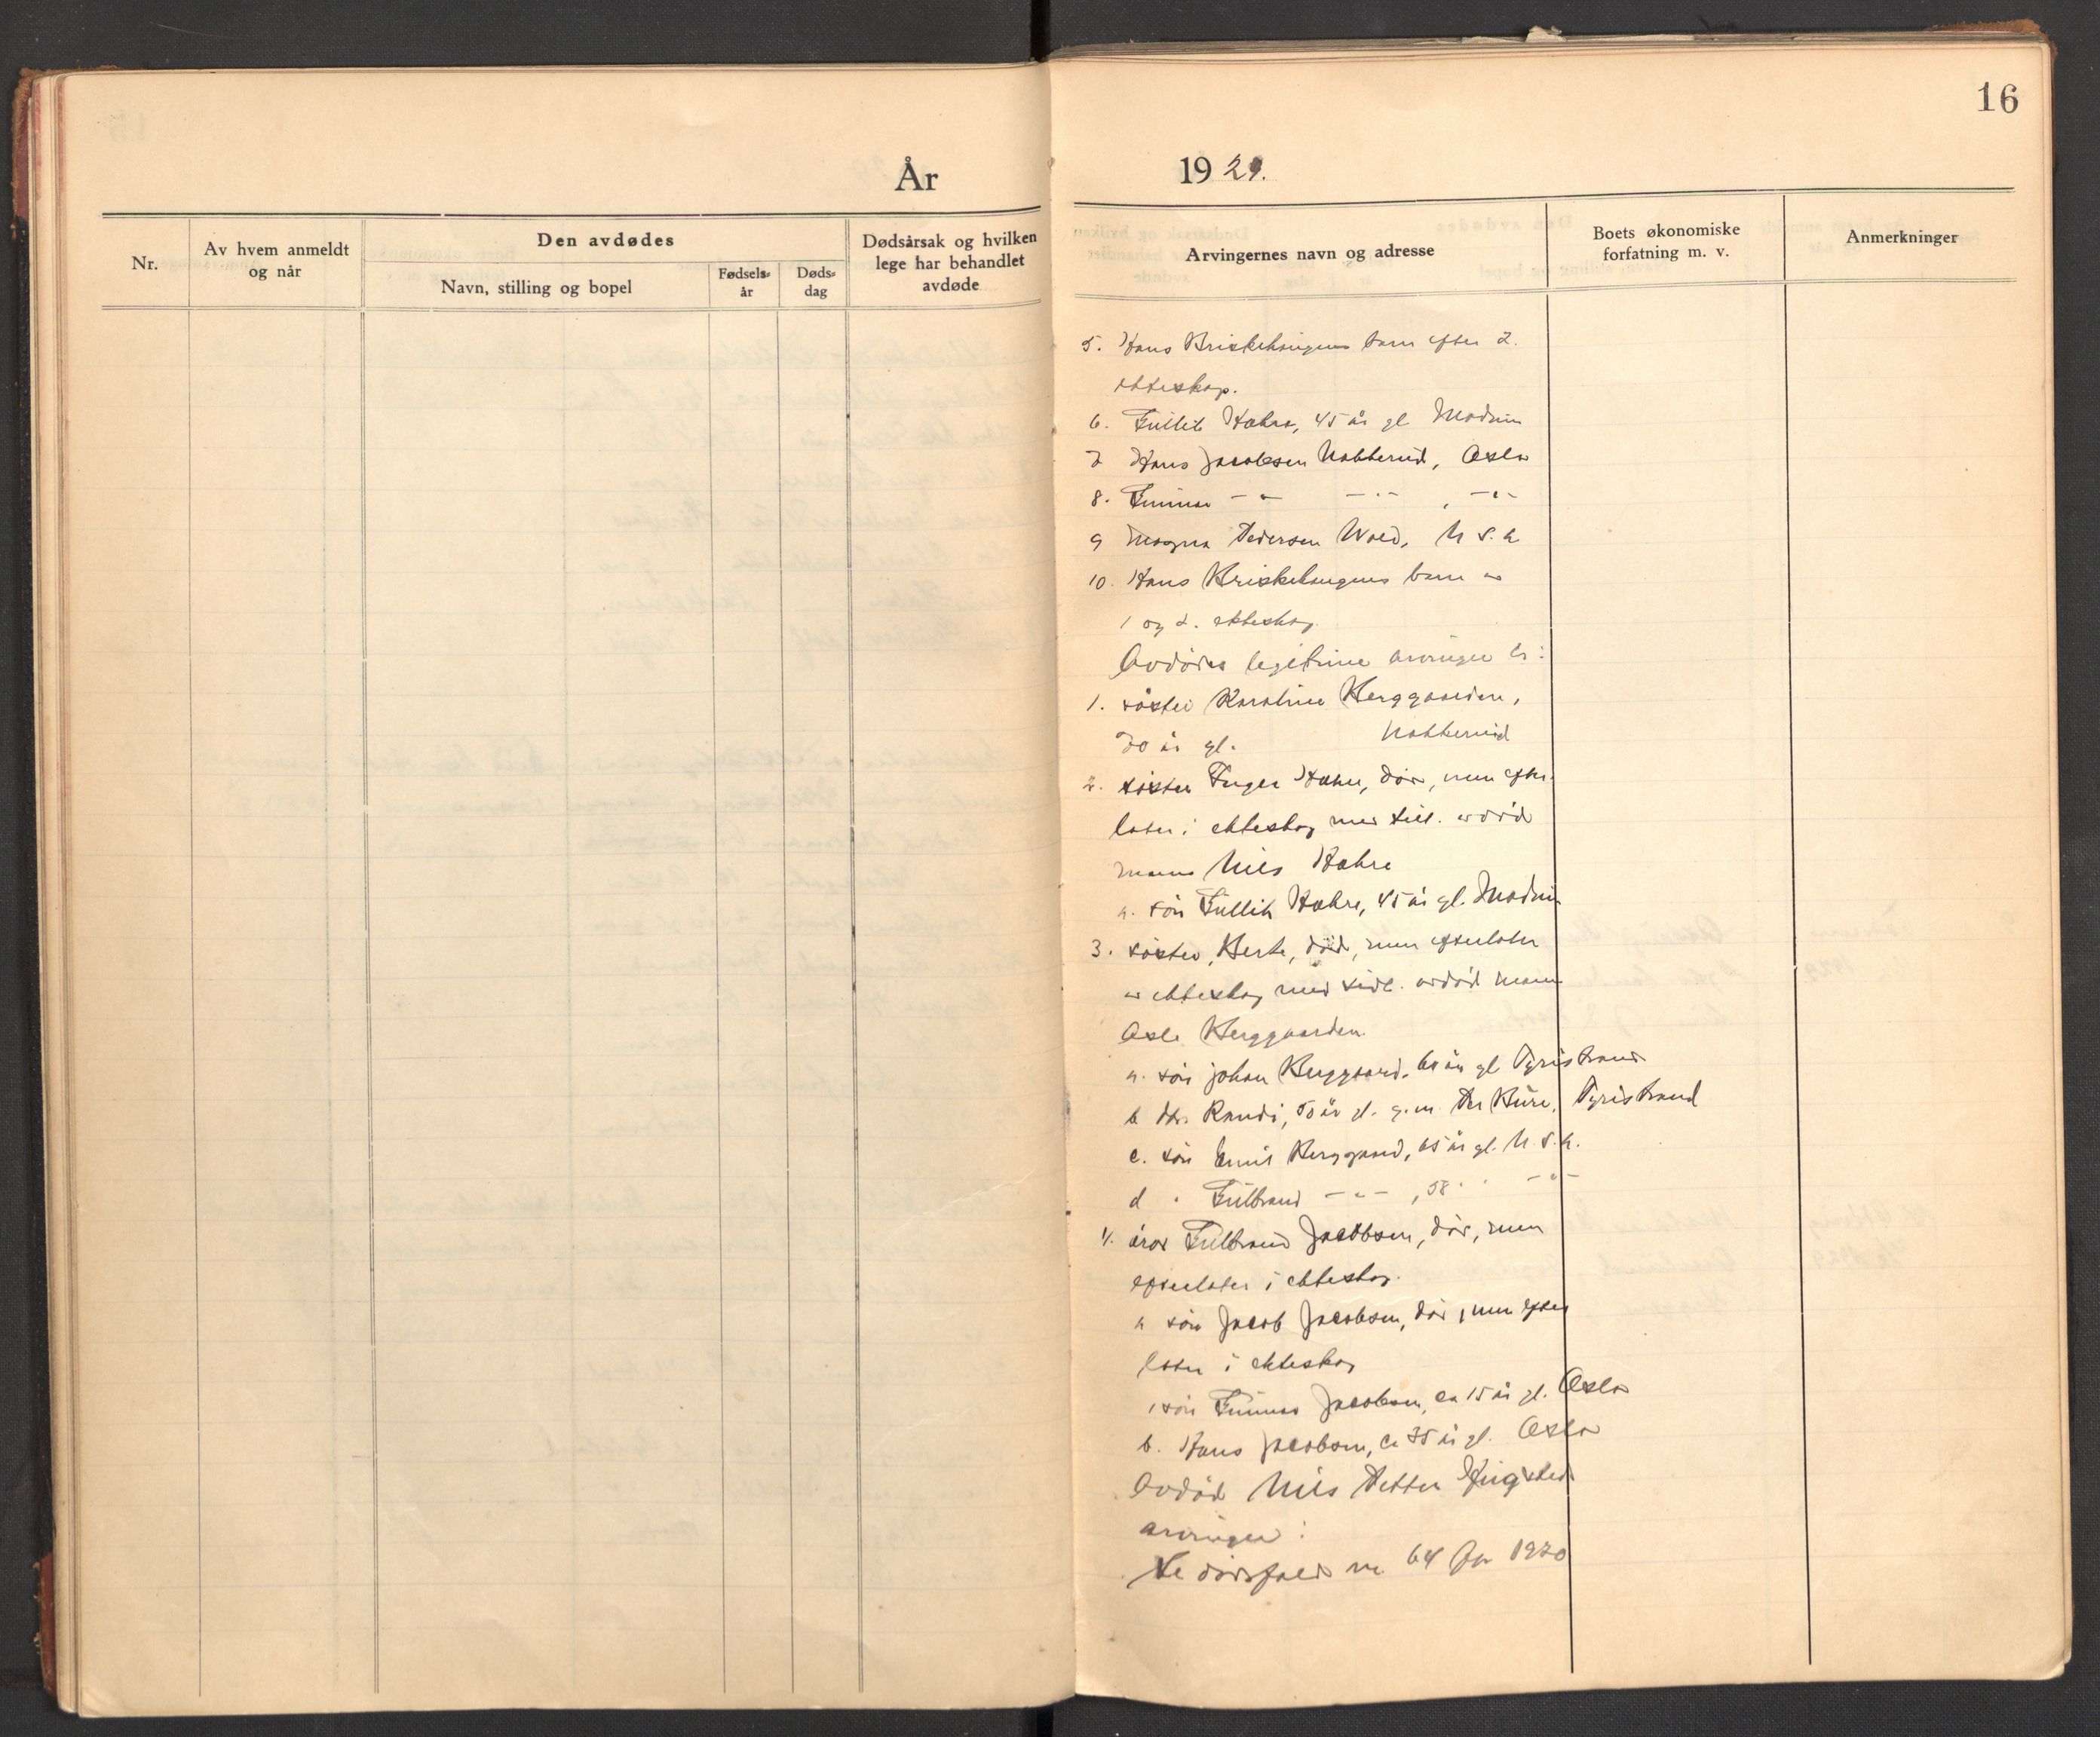 16
År
1929.
Nr.
Av hvem anmeldt
og når
Den avdødes
Navn, stilling og bopel
Fødsels=
år
Døds=
dag
Dødsårsak og hvilken
lege har behandlet
avdøde
Arvingernes navn og adresse
Boets økonomiske
forfatning m. v.
Anmerkninger
5. Hans Briskehaugens barn efter 2.
ekteskap.
6. Gullik Hæhre, 45 år gl Modum
7 Hans Jacobsen Nakkerud, Oslo
8. Gunnar - " - - " - , - " -
9 Magna Pedersen Wold, N S. h
10. Hans Briskehaugens barn av
1 og 2. ekteskap.
Avdødes legitime arvinger er:
1. søster Karoline Berggaarden,
70 år gl. Nakkerud
2. søster Inger Hæhre, død, men efter
later i ekteskap med tidl. avdød
mann Nils Hæhre
a. søn Gullik Hæhre, 45 år gl. Modum
3. søster, Berte, død, men efterlater
av ekteskap med tidl. avdød mann
Asle Berggaarden.
a. søn Johan Berggaard, år gl Tyristrand
b dtr. Randi, 50 år gl. g.m. Per Bure, Tyristrand
c. søn Emil Berggaard, 65 år gl. N. S. h.
d " Gulbrand - " - , 58 " " - " -
4. bror Gulbrand Jacobsen, død, men
efterlater i ekteskap.
a søn Jacob Jacobsen, død, men efter
later i ekteskap
1 søn Gunnar Jacobsen, ca 15 år gl. Oslo
b. Hans Jacobsen, ca 35 år gl. Oslo
Avdød Nils Petter
arvinger:
Se dødsfald nr 64 for 1920